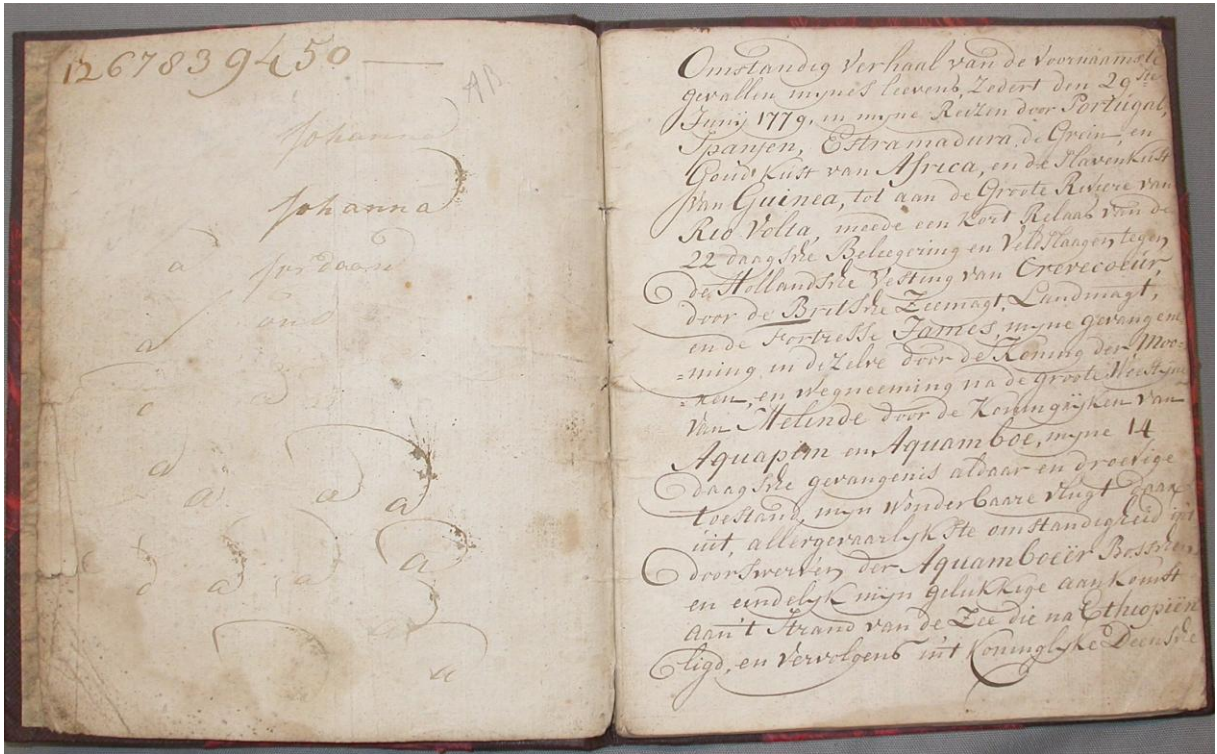 1267839450
AB
Johanna
Johanna
a Jordaan
a
a
a
a a a
a
a a a
a
Omstandig Verhaal van de Voornaamste
gevallen mynes leevens, Zedert den 29ste
Junij 1779, in myne Reizen door Portugal,
Spanjen, Estramadura, de Grein, en
Goud Kust van Africa, en de Slavenkust
van Guinea, tot aan de Groote Riviere van
Rio Volta, meede een Kort Relaas van de
22 daagsche Beleegering en Veldslaagen tegen
de Hollandsche Vesting van Crevecoeur,
door de Britsche Zeemagt, Landmagt,
en de Fortresse James, myne gevangene=
=ming in dezelve door de Koning der Moo=
=ren, en wegneeming na de groote Woestyne
van Melinde door de Koningryken van
Aquapim en Aquamboe, myne 14
daagsche gevangenis aldaar en droevige
toestand, myn wonderbaare vlugt daar
uit, allergevaarlykste omstandigheid in't
doorswerven der Aquamboeër Bosschen
en eindelyk myn gelukkige aankomst
aan't Strand van de Zee die na Ethiopiën
ligd, en vervolgens in't Koninglyke Deensche